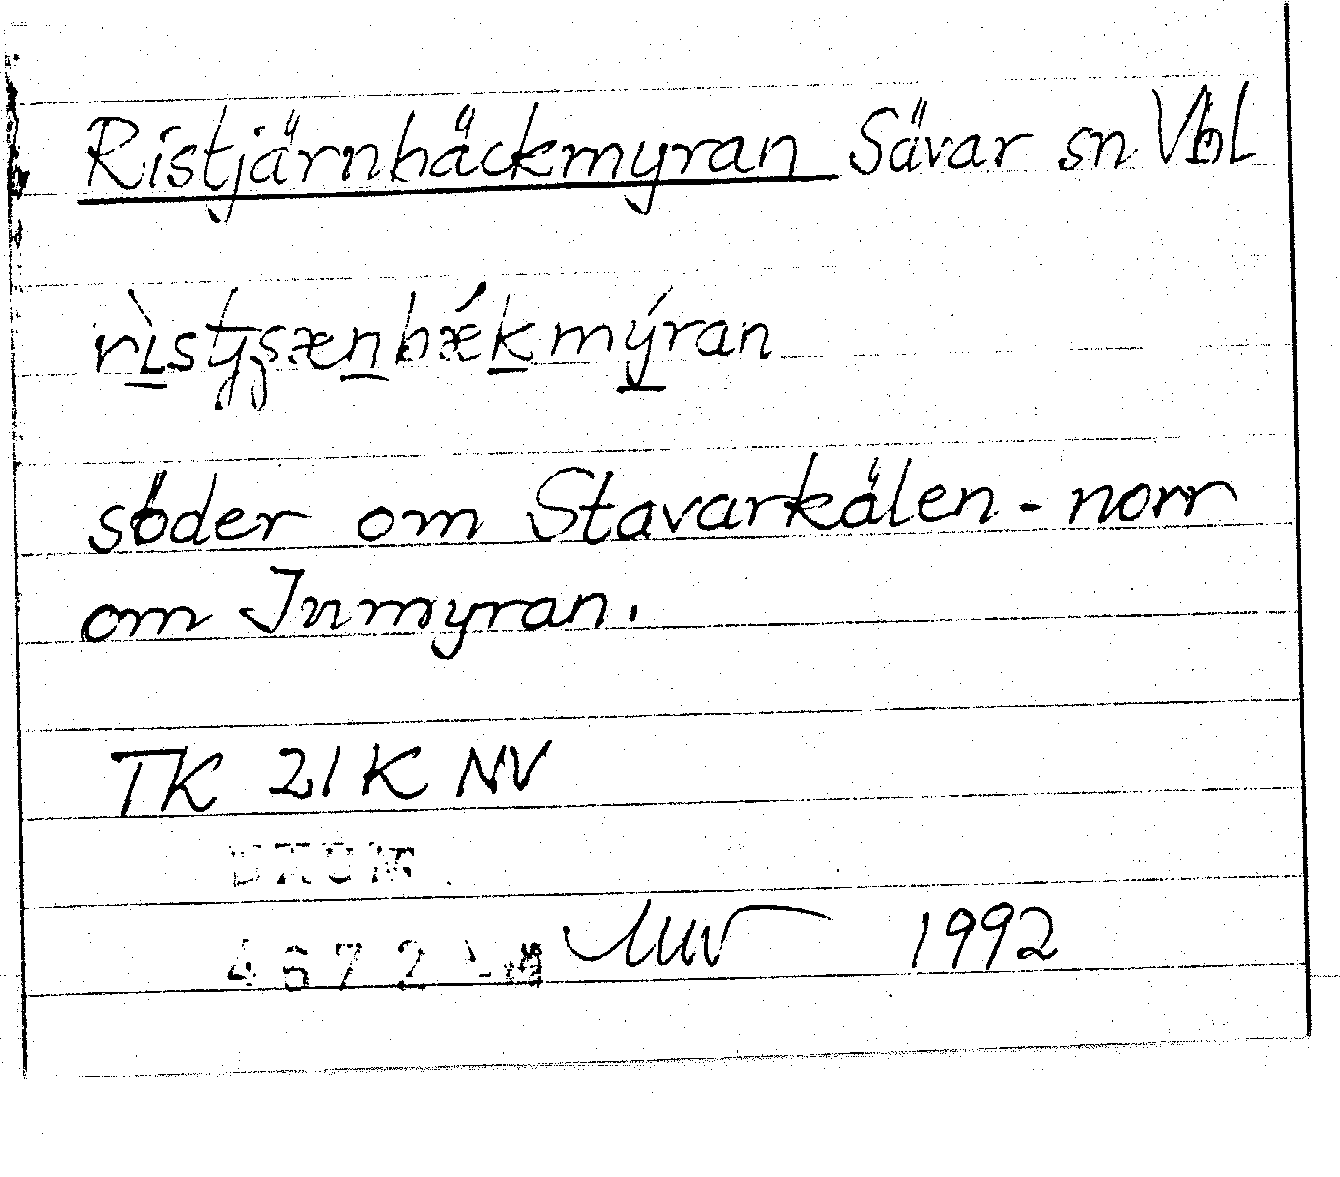 Ristjärnbäckmyran Sävar sn Vbl
rı̀stjsænbǽkmýran
söder om Stavarkälen - norr
om Inmyran.
TK 21K NV
1992